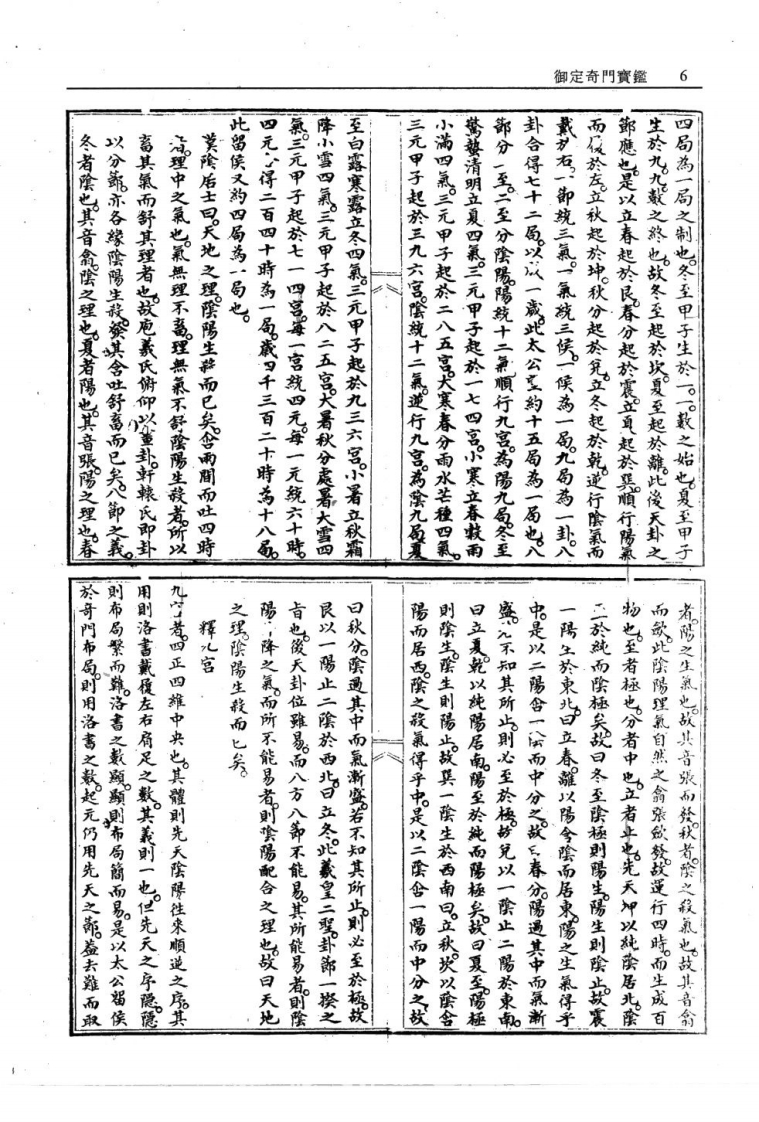 御定奇門寶鑑 6
四局為一局之制也冬至甲子生於一一數之始也夏至甲子
生於九九數之終也故冬至起於坎夏至起於離此後天卦之
節應也是以立春起於艮春分起於震立夏起於巽順行陽氣
而後於左立秋起於坤秋分起於兌立冬起於乾逆行陰氣而
戴於右一節統三氣一氣統三候一候為一局九局為一卦八
卦合得七十二局以 一歲此太公 約十五局為一局也八
節分一至二至分陰陽陽統十二氣順行九宮為陽九局冬至
驚蟄清明立夏四氣三元甲子起於一七四宮小寒立春穀雨
小滿四氣三元甲子起於二八五宮大寒春分雨水芒種四氣
三元甲子起於三九六宮陰統十二氣逆行九宮為陰九局夏
至白露寒露立冬四氣三元甲子起於九三六宮小暑立秋霜
降小雪四氣三元甲子起於八二五宮大暑秋分處暑大雪四
氣三元甲子起於七一四宮每一宮統四元每一元統六十時
四元 得二百四十時為一局歲四千三百二十時為十八局
此留侯又約四局為一局也
黃陰居士曰天地之理陰陽生殺而已矣含兩間而吐四時
 理中之氣也氣無理不畜理無氣不舒陰陽生殺者所以
畜其氣而舒其理者也故庖羲氏俯仰以 卦軒轅氏即卦
以分節亦各緣陰陽生殺 其含吐舒畜而已矣八節之義
冬者陰也其音翕陰之理也夏者陽也其音張陽之理也春
者陽之生氣也故其音張而發秋者陰之殺氣也故其音翕
而歛此陰陽理氣自然之翕張歛發故運行四時而生成百
物也至者極也分者中也立者半也先天坤以純陰居北陰
 於純而陰極矣故曰冬至陰極則陽生陽生則陰止故震
一陽生於東北曰立春離以陽含陰而居東陽之生氣得乎
中是以二陽含一陰而中分之故曰春分陽過其中而氣漸
盛 不知其所止則必至於極故兌以一陰止二陽於東南
曰立夏乾以純陽居南陽至於純而陽極矣故曰夏至陽極
則陰生陰生則陽止故巽一陰生於西南曰立秋坎以陰含
陽而居西陰之殺氣得乎中是以二陰含一陽而中分之故
曰秋分陰過其中而氣漸盛若不知其所止則必至於極故
艮以一陽止二陰於西北曰立冬此羲皇二聖卦節一揆之
旨也後天卦位雖易而八方八節不能易其所能易者則陰
陽 降之氣而所不能易者則陰陽配合之理也故曰天地
之理陰陽生殺而已矣
釋九宮
九宮者四正四維中央也其體則先天陰陽往來順逆之序其
用則洛書戴履左右肩足之數其義則一也但先天之序隱隱
則布局繁而難洛書之數顯顯則布局簡而易是以太公留侯
於奇門布局則用洛書之數起元仍用先天之節蓋去難而取